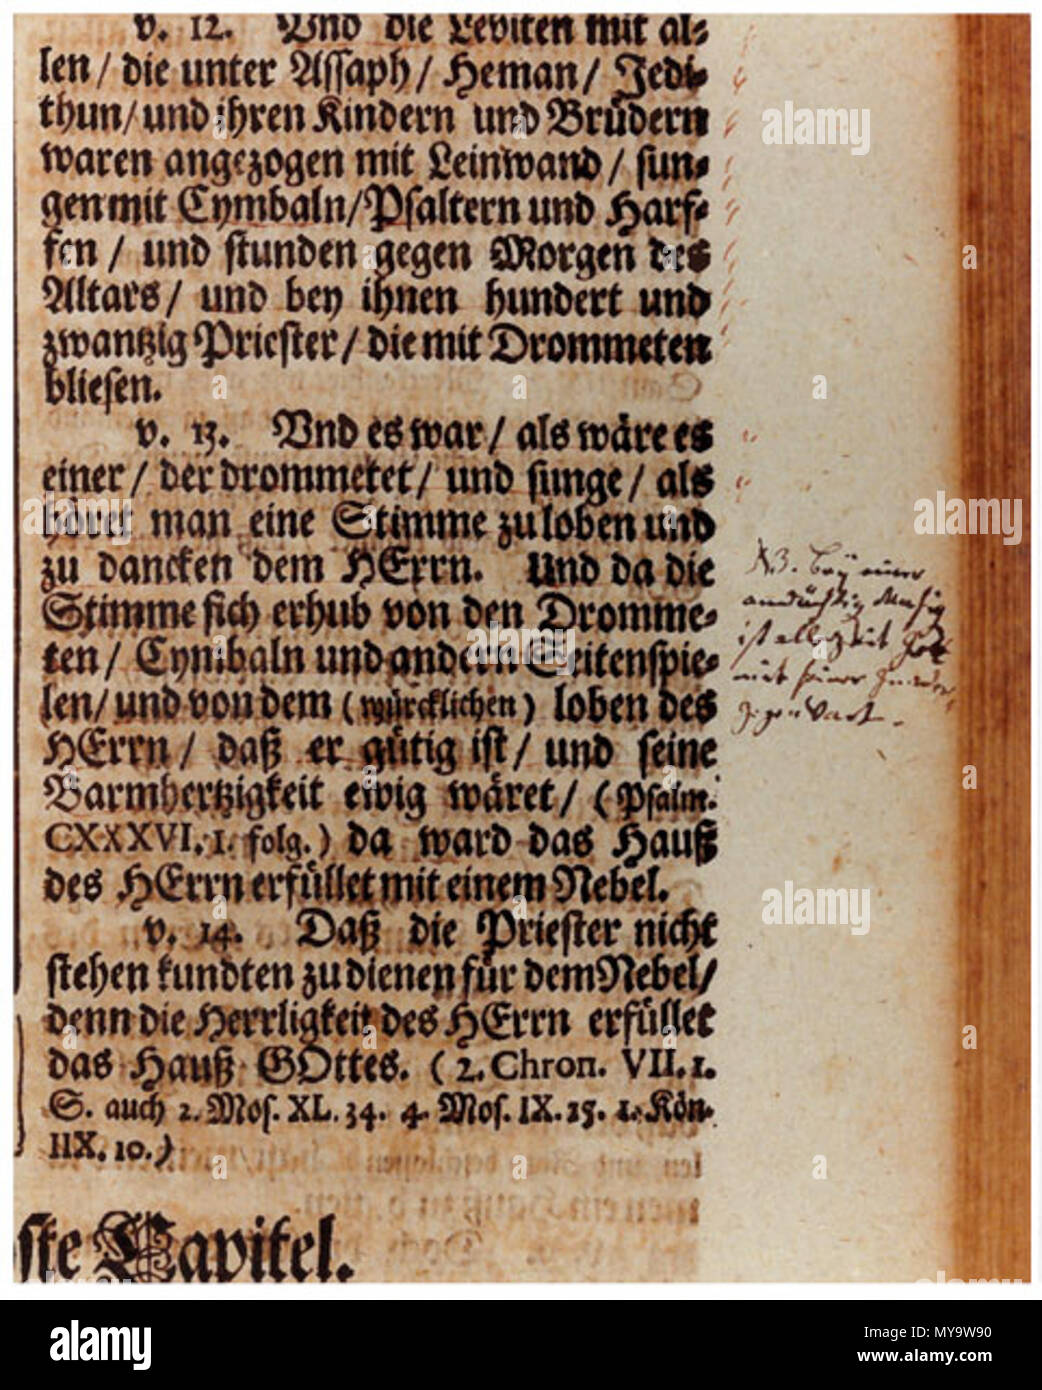 v. 12. Und die Leviten mit al-
len / die unter Assaph / Heman / Jedi-
thun / und ihren Kindern und Brüdern
waren angezogen mit Leinwand / sun-
gen mit Cymbaln / Psaltern und Harf-
fen / und stunden gegen Morgen des
Altars / und bey ihnen hundert und
zwantzig Priester / die mit Drommeten
bliesen.
v. 13. Und es war / als wäre es
einer / der drommetet / und sunge / als
höret man eine Stimme zu loben und
zu dancken dem HErrn. Und da die
Stimme sich erhub von den Dromme-
ten / Cymbaln und andern Seitenspie-
len / und von dem (würcklichen) loben des
HErrn / daß er gütig ist / und seine
Barmhertzigkeit ewig wäret / (Psalm.
CXXXVI. 1. folg.) da ward das Hauß
des HErrn erfüllet mit einem Nebel.
v. 14. Daß die Priester nicht
stehen kundten zu dienen für dem Nebel /
denn die Herrligkeit des HErrn erfüllet
das Hauß GOttes. (2. Chron. VII. 1.
S. auch 2. Mos. XL. 34. 4. Mos. IX. 15. 1. Kön.
IIX. 10.)
ste Capitel.
NB. Beÿ einer
andächtig Musiq
ist allezeit Gott
mit seiner Gnaden
Gegenwart.
alamy
Image ID: MY9W90
www.alamy.com